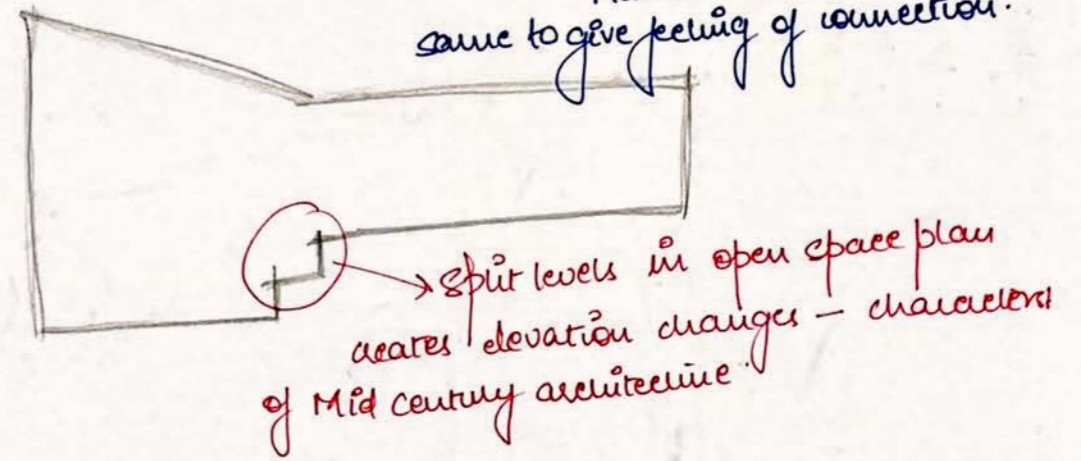 same to give feeling of connection.
split levels in open space plan
creates elevation changes – characterst
of Mid century architecture.